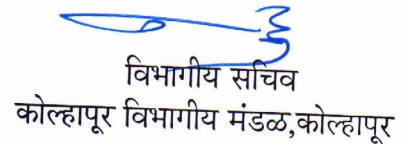 विभागीय सचिव
कोल्हापूर विभागीय मंडळ,कोल्हापूर